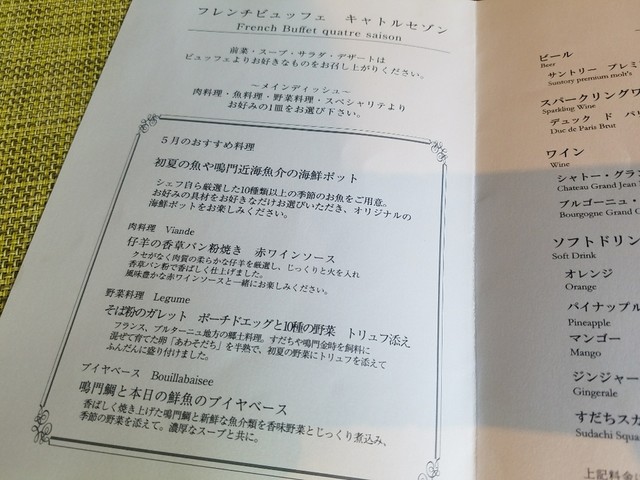 フレンチビュッフェ　キャトルセゾン
French Buffet quatre saison
前菜・スープ・サラダ・デザートは
ビュッフェよりお好きなものをお召し上がりください。
～メインディッシュ～
肉料理・魚料理・野菜料理・スペシャリテより
お好みの1皿をお選び下さい。
５月のおすすめ料理
初夏の魚や鳴門近海魚介の海鮮ポット
シェフ自ら厳選した10種類以上の季節のお魚をご用意。
お好みの具材をお好きなだけお選びいただき、オリジナルの
海鮮ポットをお楽しみください。
肉料理　Viande
仔羊の香草パン粉焼き　赤ワインソース
クセがなく肉質の柔らかな仔羊を厳選し、じっくりと火を入れ
香草パン粉で香ばしく仕上げました。
風味豊かな赤ワインソースと一緒にお楽しみください。
野菜料理　Legume
そば粉のガレット　ポーチドエッグと10種の野菜　トリュフ添え
フランス、ブルターニュ地方の郷土料理。すだちや鳴門金時を飼料に
混ぜて育てた卵「あわそだち」を半熟で、初夏の野菜にトリュフを添えて
ふんだんに盛り付けました。
ブイヤベース　Bouillabaisee
鳴門鯛と本日の鮮魚のブイヤベース
香ばしく焼き上げた鳴門鯛と新鮮な魚介類を香味野菜とじっくり煮込み、
季節の野菜を添えて。濃厚なスープと共に。
ビール
Beer
サントリー　プレミ
Suntory premium molt's
スパークリングワ
Sparkling Wine
デュック　ド　パリ
Duc de Paris Brut
ワイン
Wine
シャトー・グラン
Chateau Grand Jean
ブルゴーニュ・
Bourgogne Grand
ソフトドリン
Soft Drink
オレンジ
Orange
パイナップル
Pineapple
マンゴー
Mango
ジンジャー
Gingerale
すだちスカ
Sudachi Squa
上記料金に